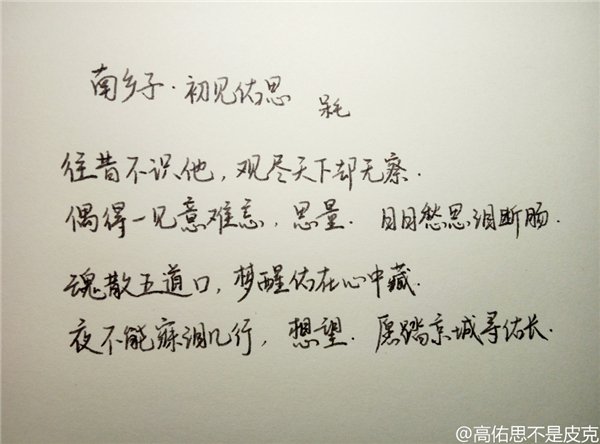 南乡子·初见佑思 呆毛
往昔不识他，观尽天下却无察.
偶得一见意难忘，思量. 日日愁思泪断肠.
魂散五道口，梦醒佑在心中藏.
夜不能寐泪几行，想望. 愿踏京城寻佑长.
@高佑思不是皮克